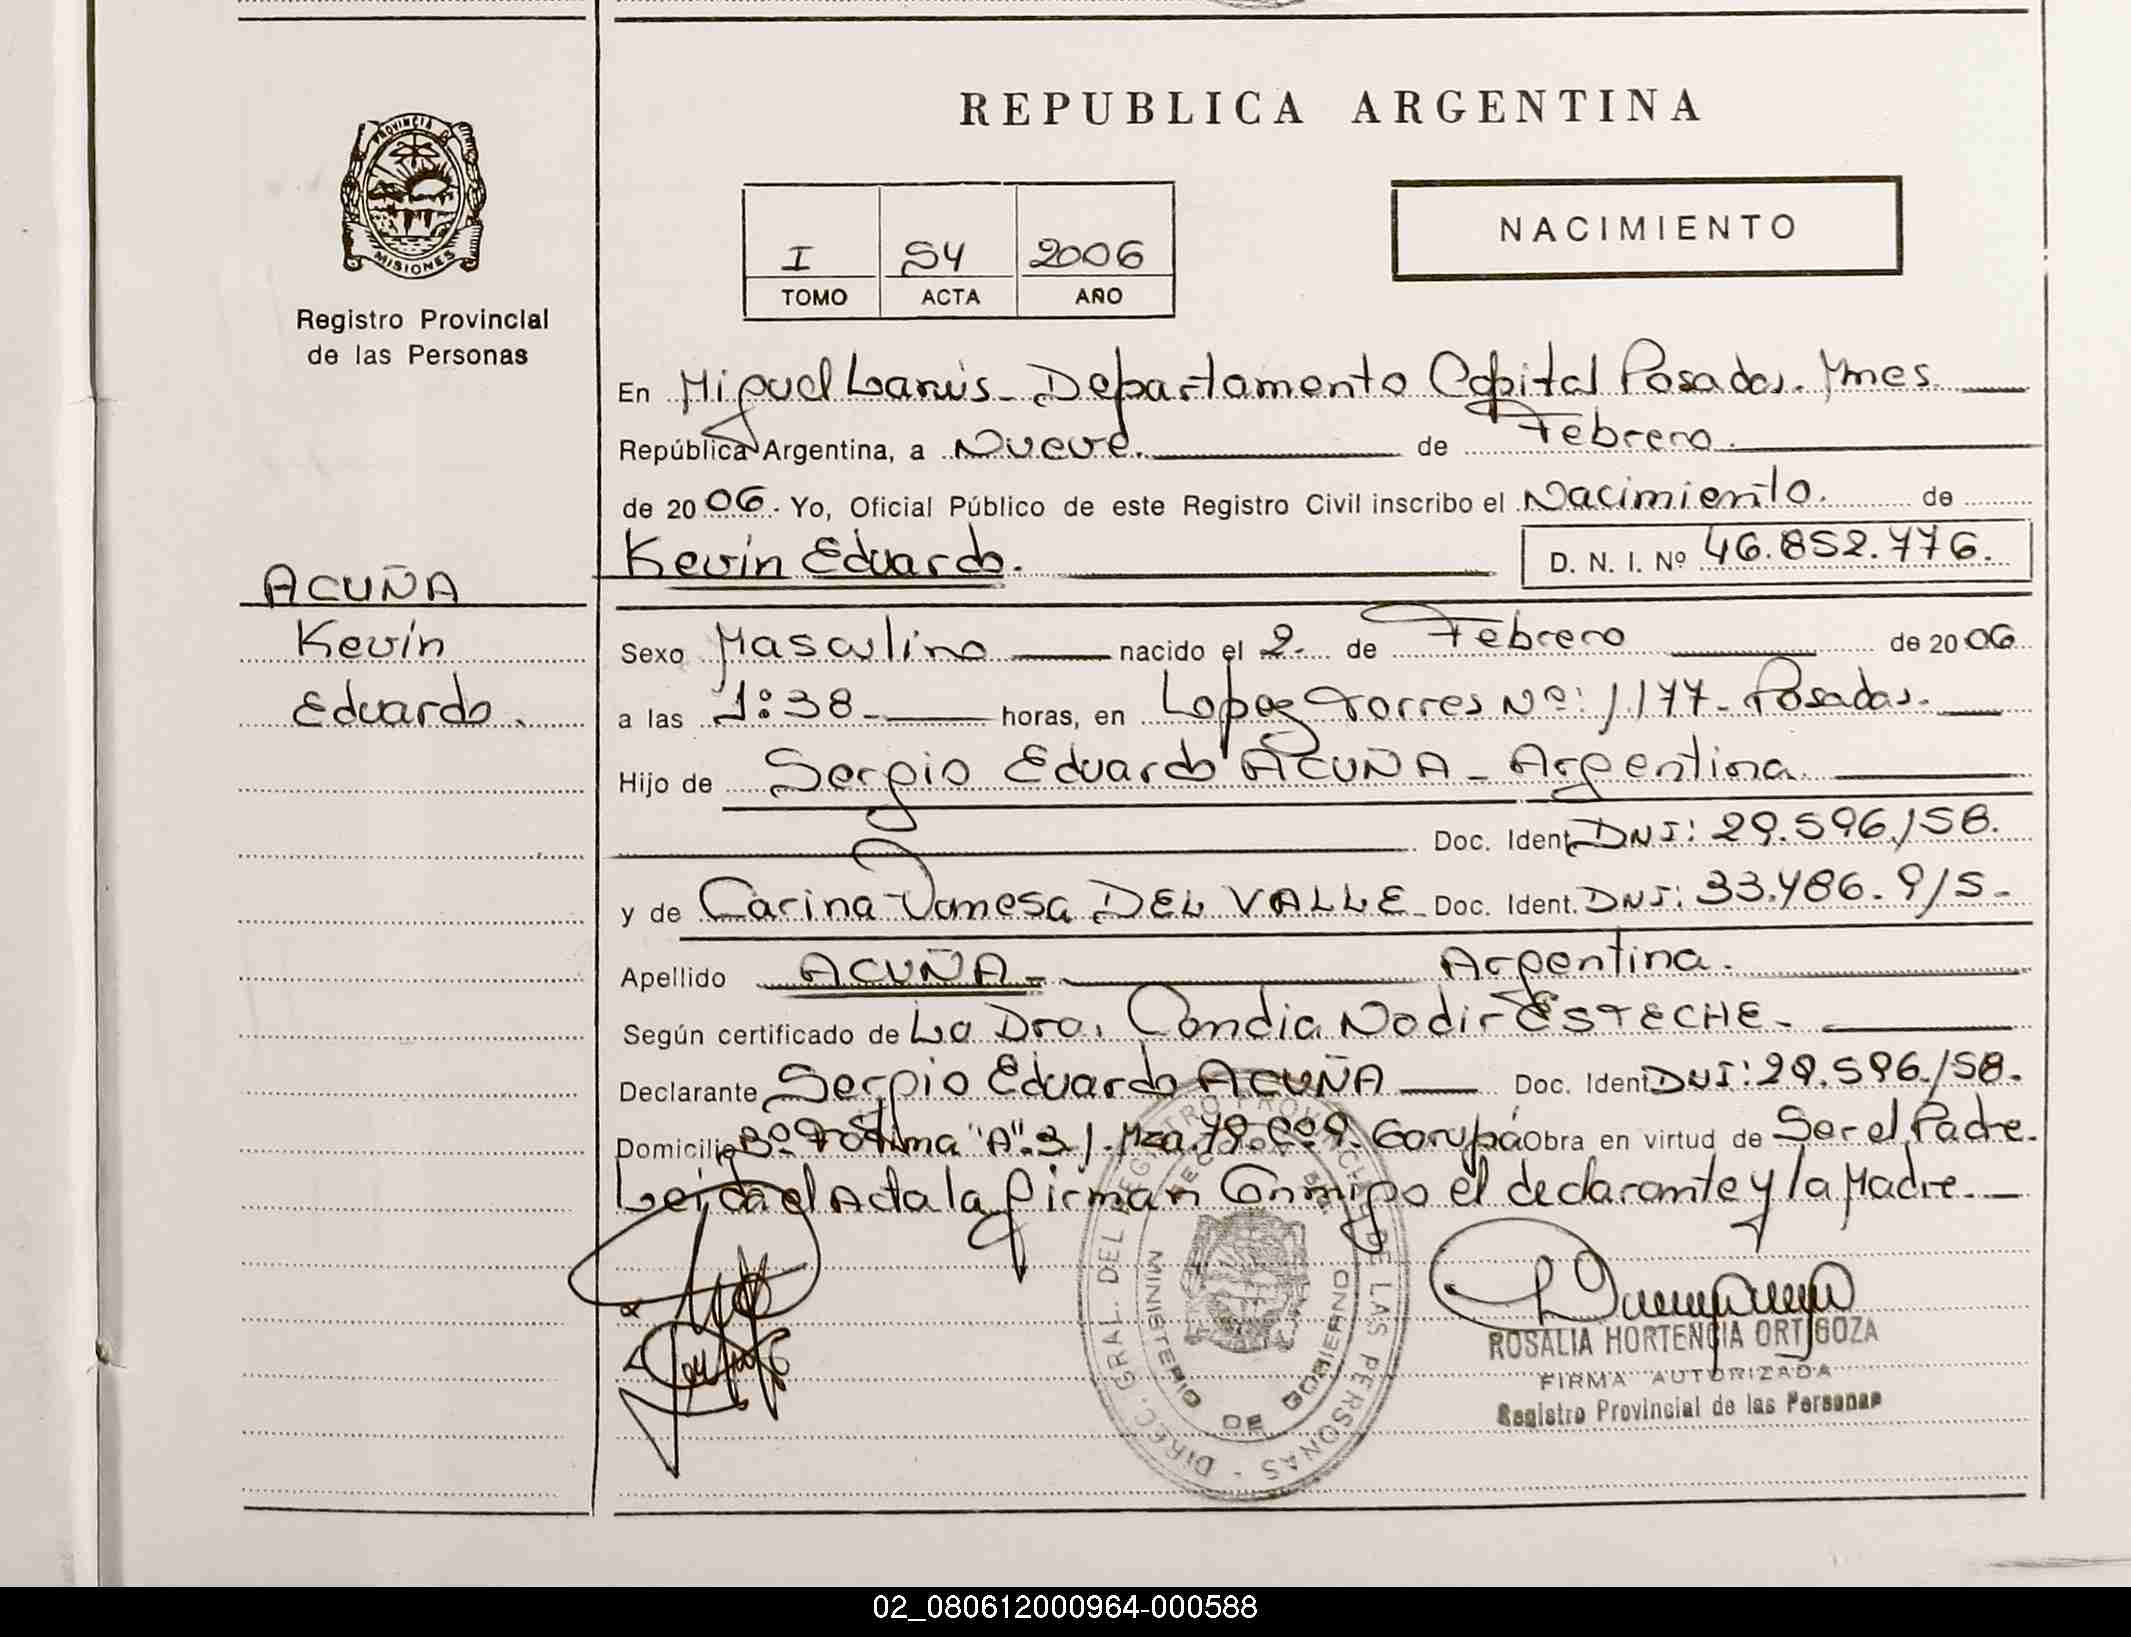 REPUBLICA ARGENTINA
PROVINCIA
MISIONES
Registro Provincial
de las Personas
I 54 2006
TOMO ACTA AÑO
NACIMIENTO
En Miguel Lanús - Departamento Capital Posadas. Mnes.
República Argentina, a Nueve. de Febrero.
de 2006. Yo, Oficial Público de este Registro Civil inscribo el Nacimiento. de
Kevin Eduardo. D. N. I. Nº 46.852.776.
ACUÑA
Kevin
Eduardo.
Sexo Masculino nacido el 2. de Febrero de 2006
a las 1:38- horas, en Lopez Torres Nº: 1.177- Posadas.
Hijo de Sergio Eduardo ACUÑA - Argentina.
Doc. Ident. DNI: 29.596.158.
y de Carina Vanesa DEL VALLE - Doc. Ident. DNI: 33.486.915-
Apellido ACUÑA - Argentina.
Según certificado de La Dra. Candia Nadir ESTECHE -
Declarante Sergio Eduardo ACUÑA Doc. Ident DNI: 29.596.158.
Domicilio Bº Fátima "A". 31. Mza. 79. Garupá Obra en virtud de Ser el Padre.
Leida el Acta la firman Conmigo el declarante y la Madre.
DIREC. GRAL. DEL REGISTRO PROVINCIAL DE LAS PERSONAS -
MINISTERIO DE GOBIERNO
ROSALIA HORTENCIA ORTIGOZA
FIRMA AUTORIZADA
Registro Provincial de las Personas
02_080612000964-000588